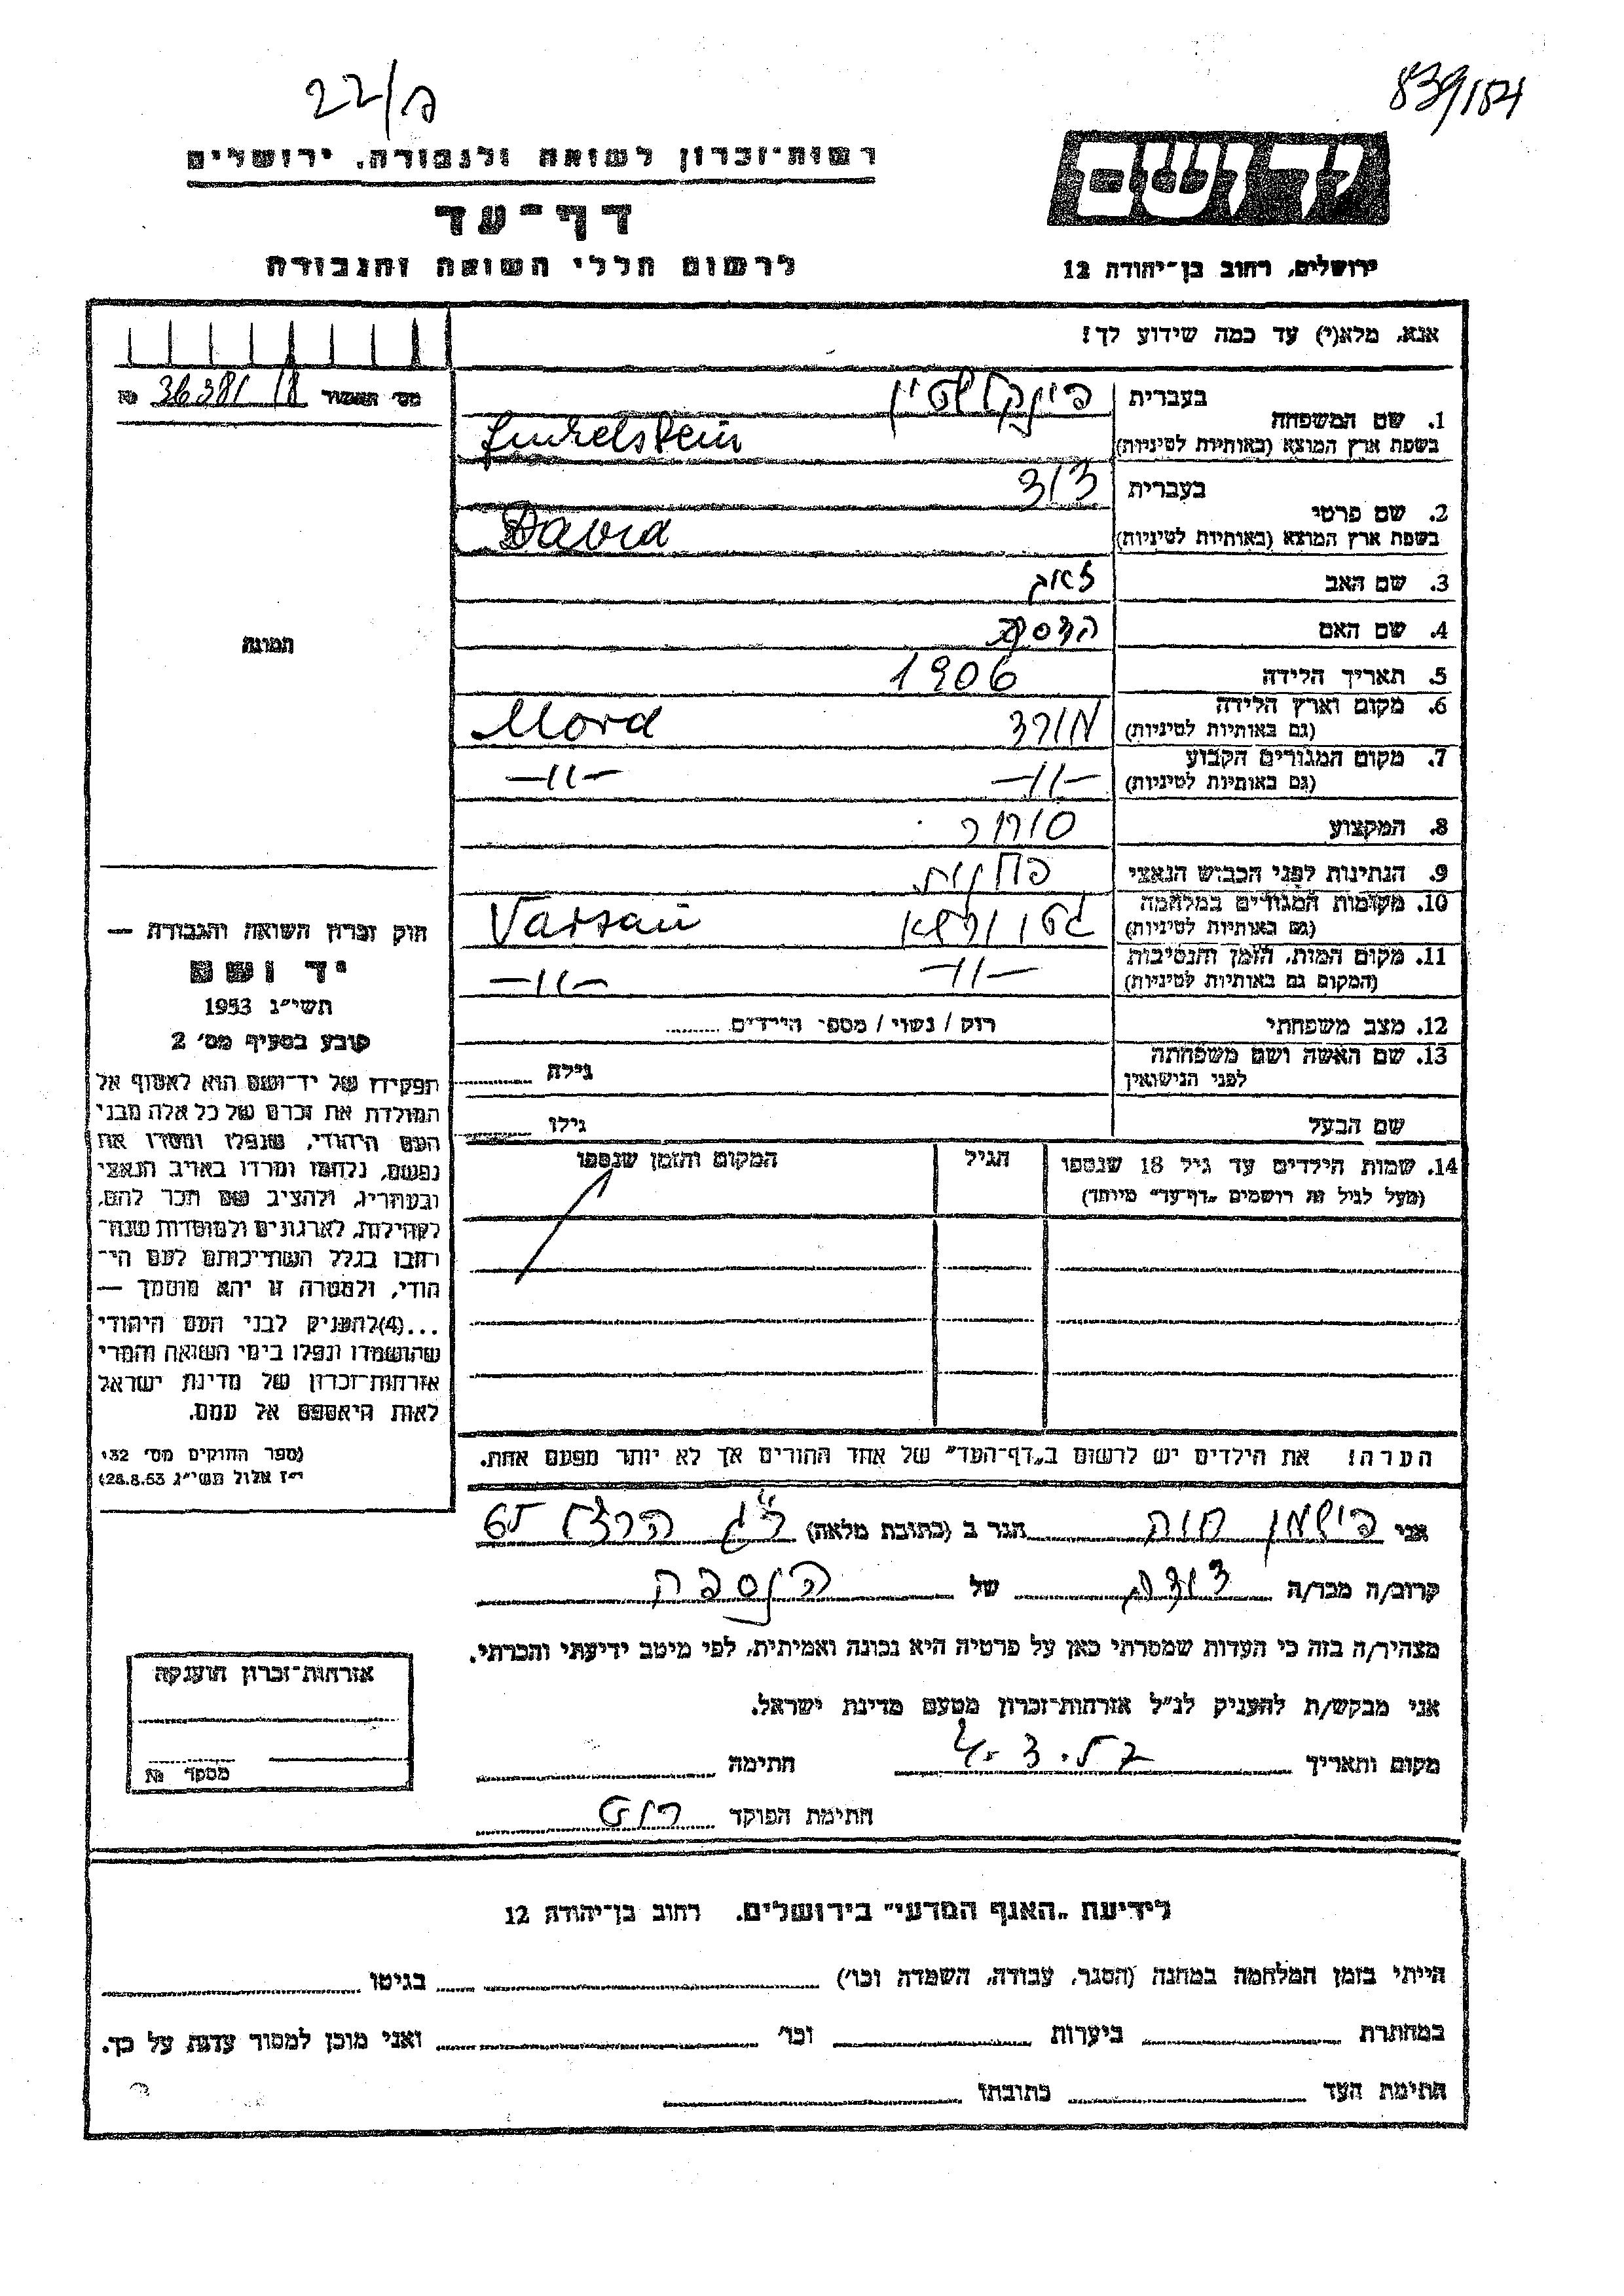 22/ק
839/154
רשות-זכרון לשואה ולגבורה, ירושלים
יד ושם
דף-עד
לרשום חללי השואה והגבורה
ירושלים, רחוב בן-יהודה 12
אנא, מלא(י) עד כמה שידוע לך!
מס' האשור 36381/18 №
1. שם המשפחה בעברית פינקלשטיין
בשפת ארץ המוצא (באותיות לטיניות) Finkelstein
2. שם פרטי בעברית דוד
בשפת ארץ המוצא (באותיות לטיניות) David
3. שם האב זאב
4. שם האם הדסה
5. תאריך הלידה 1906
6. מקום וארץ הלידה מורד Mord
(גם באותיות לטיניות)
7. מקום המגורים הקבוע -11- -11-
(גם באותיות לטיניות)
8. המקצוע סוחר
9. הנתינות לפני הכבוש הנאצי
10. מקומות המגורים במלחמה גטו ורשא Varsau
(גם באותיות לטיניות)
11. מקום המות, הזמן והנסיבות -11- -11-
(המקום גם באותיות לטיניות)
12. מצב משפחתי רוק / נשוי / מספר הילדים
13. שם האשה ושם משפחתה גילה
לפני הנישואין
שם הבעל גילו
14. שמות הילדים עד גיל 18 שנספו הגיל המקום והזמן שנספו
(מעל לגיל זה רושמים „דף-עד” מיוחד)
תמונה
חוק זכרון השואה והגבורה —
יד ושם
תשי״ג 1953
קובע בסעיף מס' 2
תפקידו של יד-ושם הוא לאסוף אל
המולדת את זכרם של כל אלה מבני
העם היהודי, שנפלו ומסרו את
נפשם, נלחמו ומרדו באויב הנאצי
ובעוזריו, ולהציב שם וזכר להם,
לקהילות, לארגונים ולמוסדות שנח־
רבו בגלל השתייכותם לעם הי־
הודי, ולמטרה זו יהא מוסמך —
...(4)להעניק לבני העם היהודי
שהושמדו ונפלו בימי השואה והמרי
אזרחות-זכרון של מדינת ישראל
לאות היאספם אל עמם.
(ספר החוקים מס' 132
י״ז אלול תשי״ג 28.8.53)
הערה! את הילדים יש לרשום ב„דף-העד” של אחד ההורים אך לא יותר מפעם אחת.
אני פישמן חוה הגר ב (כתובת מלאה) ר״ג הרצל 65
קרוב/ה מכר/ה דודה של הנספה
מצהיר/ה בזה כי העדות שמסרתי כאן על פרטיה היא נכונה ואמיתית, לפי מיטב ידיעתי והכרתי.
אני מבקש/ת להעניק לנ״ל אזרחות-זכרון מטעם מדינת ישראל.
מקום ותאריך 4.3.57 חתימה
חתימת הפוקד
אזרחות-זכרון הוענקה
מספר №
לידיעת „האגף המדעי” בירושלים. רחוב בן-יהודה 12
הייתי בזמן המלחמה במחנה (הסגר, עבודה, השמדה וכו') בגיטו
במחתרת ביערות וכו' ואני מוכן למסור עדות על כך.
חתימת העד כתובתו